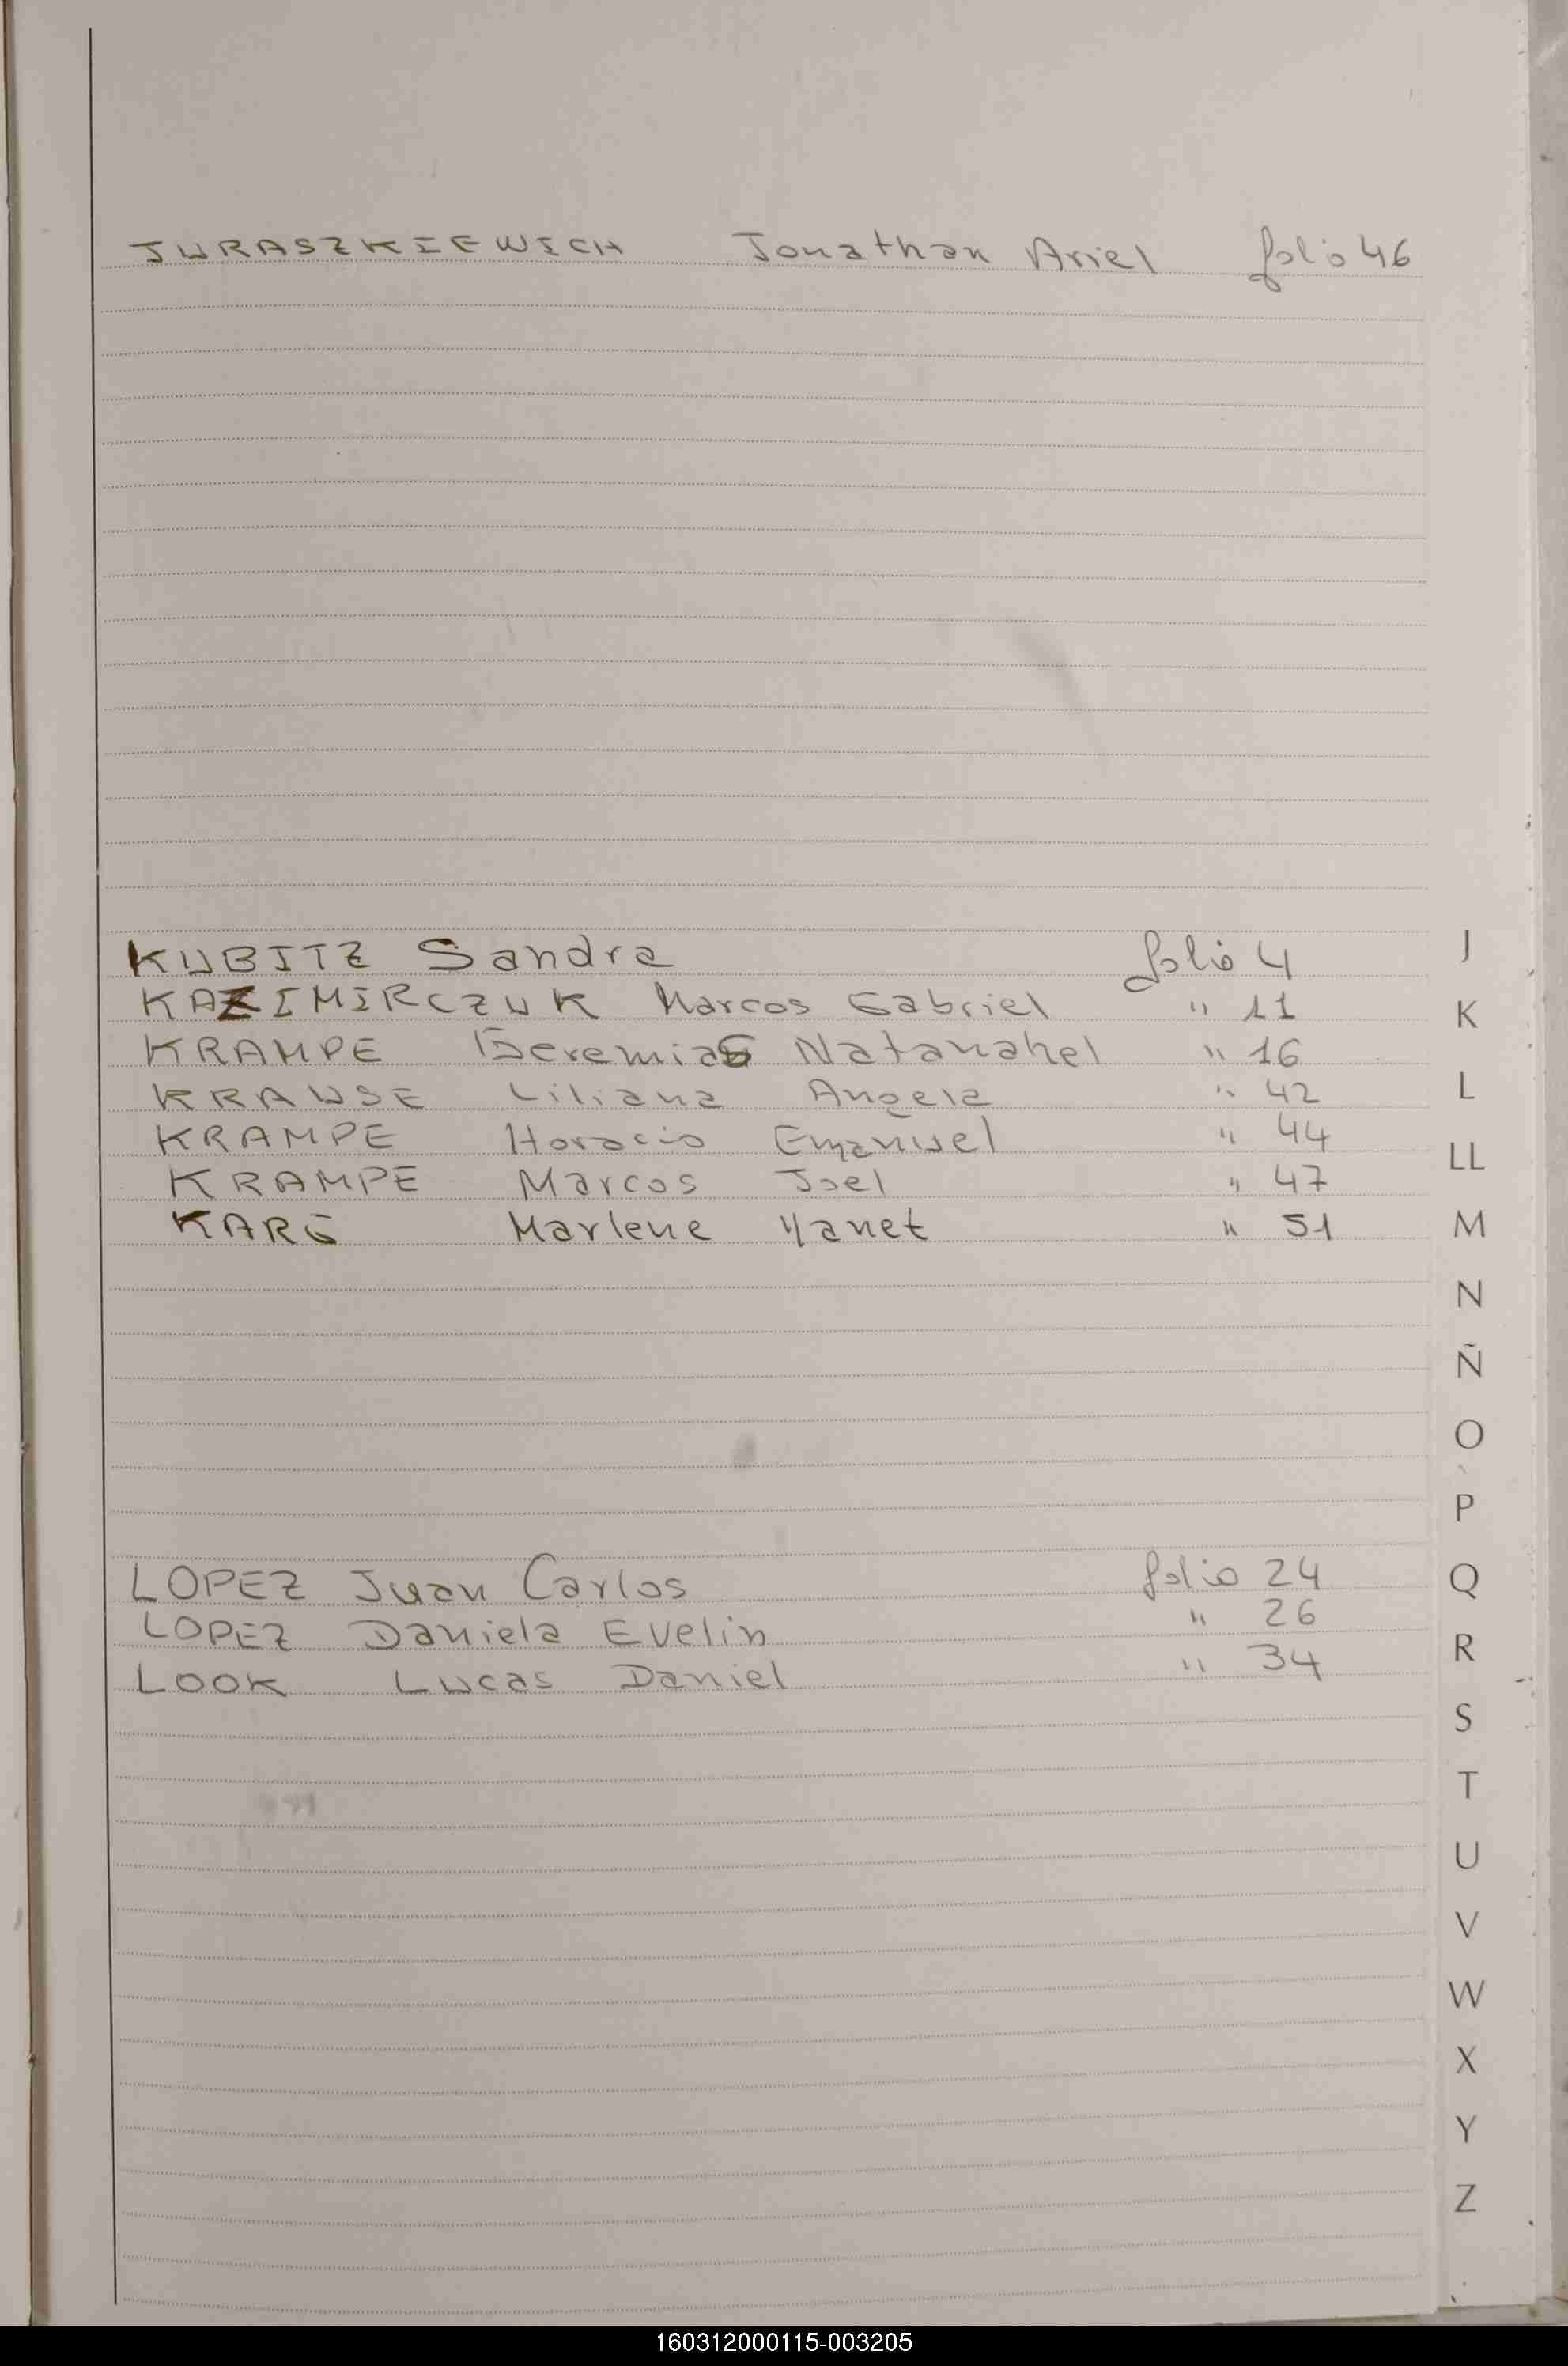 JURASZKIEWICH Jonathan Ariel folio 46
KUBITZ Sandra folio 4
KAZIMIRCZUK Marcos Gabriel " 11
KRAMPE Geremias Natanahel " 16
KRAUSE Liliana Angela " 42
KRAMPE Horacio Emanuel " 44
KRAMPE Marcos Joel " 47
KARG Marlene Yanet " 51
LOPEZ Juan Carlos folio 24
LOPEZ Daniela Evelin " 26
LOOK Lucas Daniel " 34
J
K
L
LL
M
N
Ñ
O
P
Q
R
S
T
U
V
W
X
Y
Z
160312000115-003205